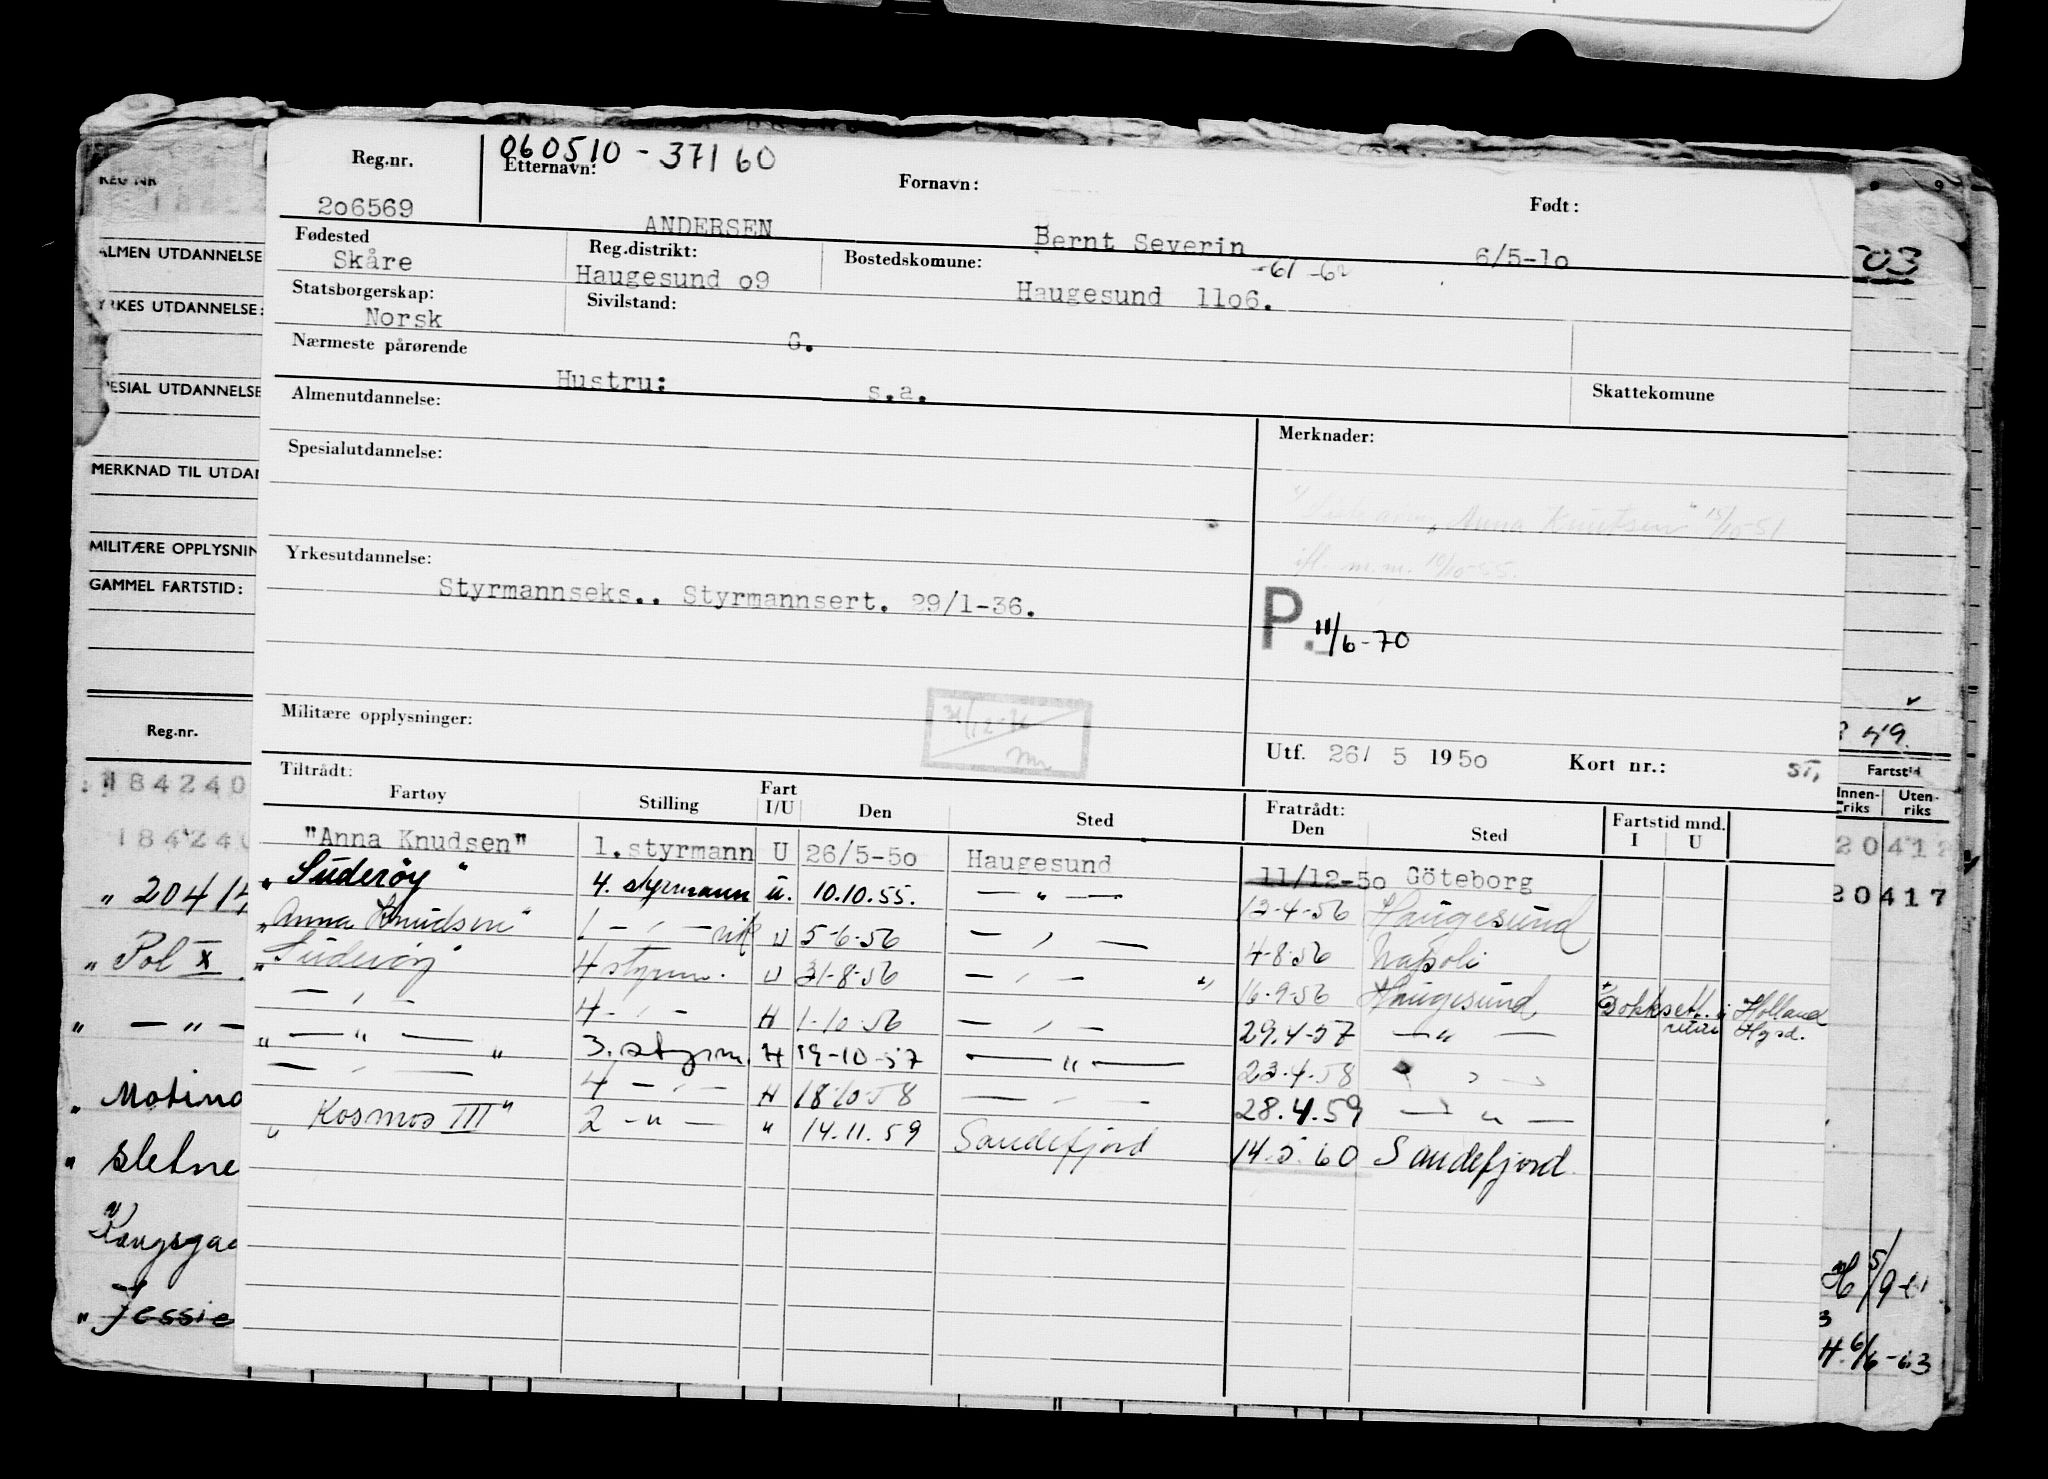 060510 - 37160
Reg.nr. Etternavn: Fornavn: Født:
206569 ANDERSEN Bernt Severin 6/5-10
Fødested Reg.distrikt: Bostedskomune: -61 -62
Skåre Haugesund 09 Haugesund 1106.
Statsborgerskap: Sivilstand:
Norsk G.
Nærmeste pårørende
Hustru: s.a. Skattekomune
Almenutdannelse: Merknader:
Spesialutdannelse:
"Anna Knutsen" 15/10-51
m.m. 10/10-55.
Yrkesutdannelse:
Styrmannseks.. Styrmannsert. 29/1-36.
P. 11/6-70
Militære opplysninger:
Utf. 26/ 5 1950 Kort nr.:
Tiltrådt: Fratrådt: Fartstid mnd.
Fartøy Stilling Fart I/U Den Sted Den Sted I U
"Anna Knudsen" 1.styrmann U 26/5-50 Haugesund 11/12-50 Göteborg
"Suderøy" 4. styrmann u. 10.10.55. — " — 12-4-56 Haugesund
"Anna Knudsen" 1 — " — U 5-6-56 — " — 4-8-56 Napoli
"Suderøy" 4 styrm. U 31-8-56 — " — 16-9-56 Haugesund Holland
— " — 4 - " - H 1-10-56 — " — 29.4-57 — " — Hgsd.
" — " — " 3. styrm. H 19-10-57 — " — 23.4.58 " " "
— " — 4 — " — H 18-10-58 — " — 28.4.59 — " —
"Kosmos III" 2 — " — " 14.11.59 Sandefjord 14.5.60 Sandefjord
REG NR
ALMEN UTDANNELSE
YRKES UTDANNELSE:
SPESIAL UTDANNELSE
MERKNAD TIL UTDAN
MILITÆRE OPPLYSNIN
GAMMEL FARTSTID:
Reg.nr.
184240
18424
" 20414
" Pol X
" — " —
" Motina
" Sletne
Kongsga
" Jessie
503
Fartstid
Innenriks Utenriks
20412
20417
H 5/9-61
H. 6/6-63